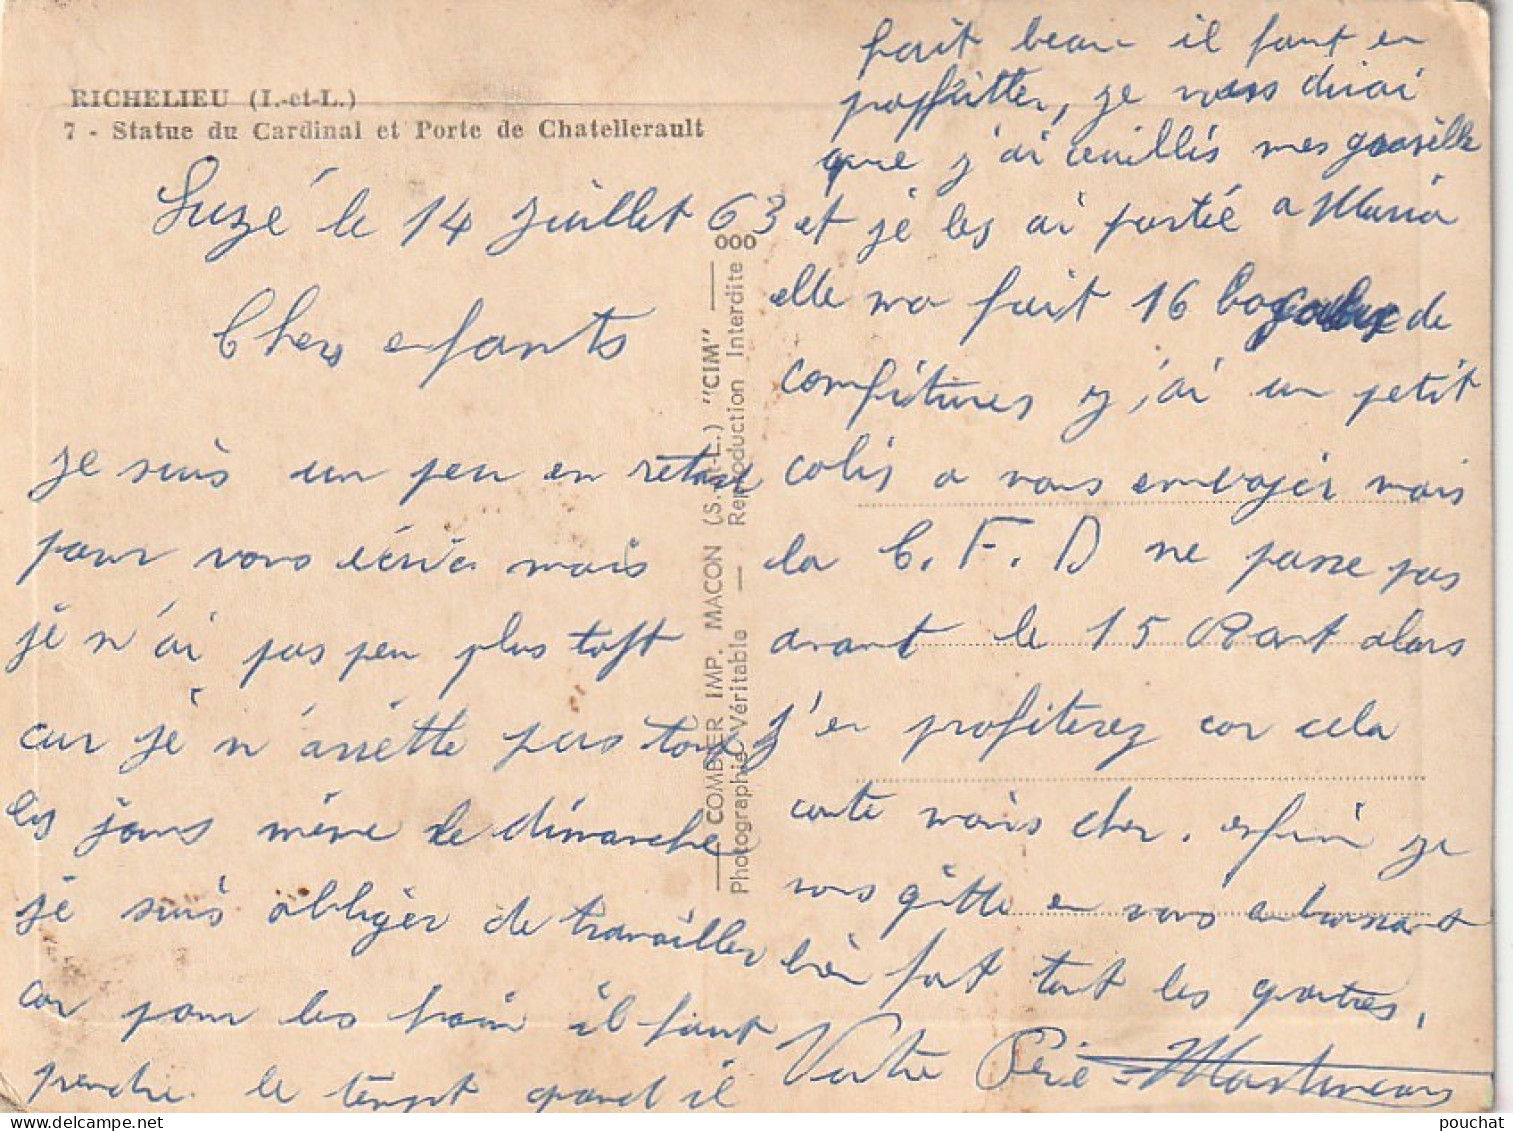 RICHELIEU (I.-et-L.)
7 - Statue du Cardinal et Porte de Chatellerault
Suzé le 14 Juillet 63
Chers enfants
je suis un peu en retard
pour vous écrire mais
je n'ai pas peu plus toft
car je n'arrètte pas tous
les jours même le dimanche
je suis obliger de travailler
car pour les foin il faut
prendre le tempt quand il
fait beau il faut en
proffitter, je vous dirai
que j'ai ceuillis mes groseille
et je les ai portée a Maria
elle ma fait 16 de
confitures j'ai un petit
colis a vous envoyer mais
la C. F. D ne passe pas
avant le 15 Oout alors
j'en profiterez car cela
coute moins cher. enfin je
vous quitte en vous embrassant
bien fort tout les quatres,
Votre Père Martineau
COMBIER IMP. MACON (S.-et-L.) "CIM"
Photographie Véritable — Reproduction Interdite
000
pouchat